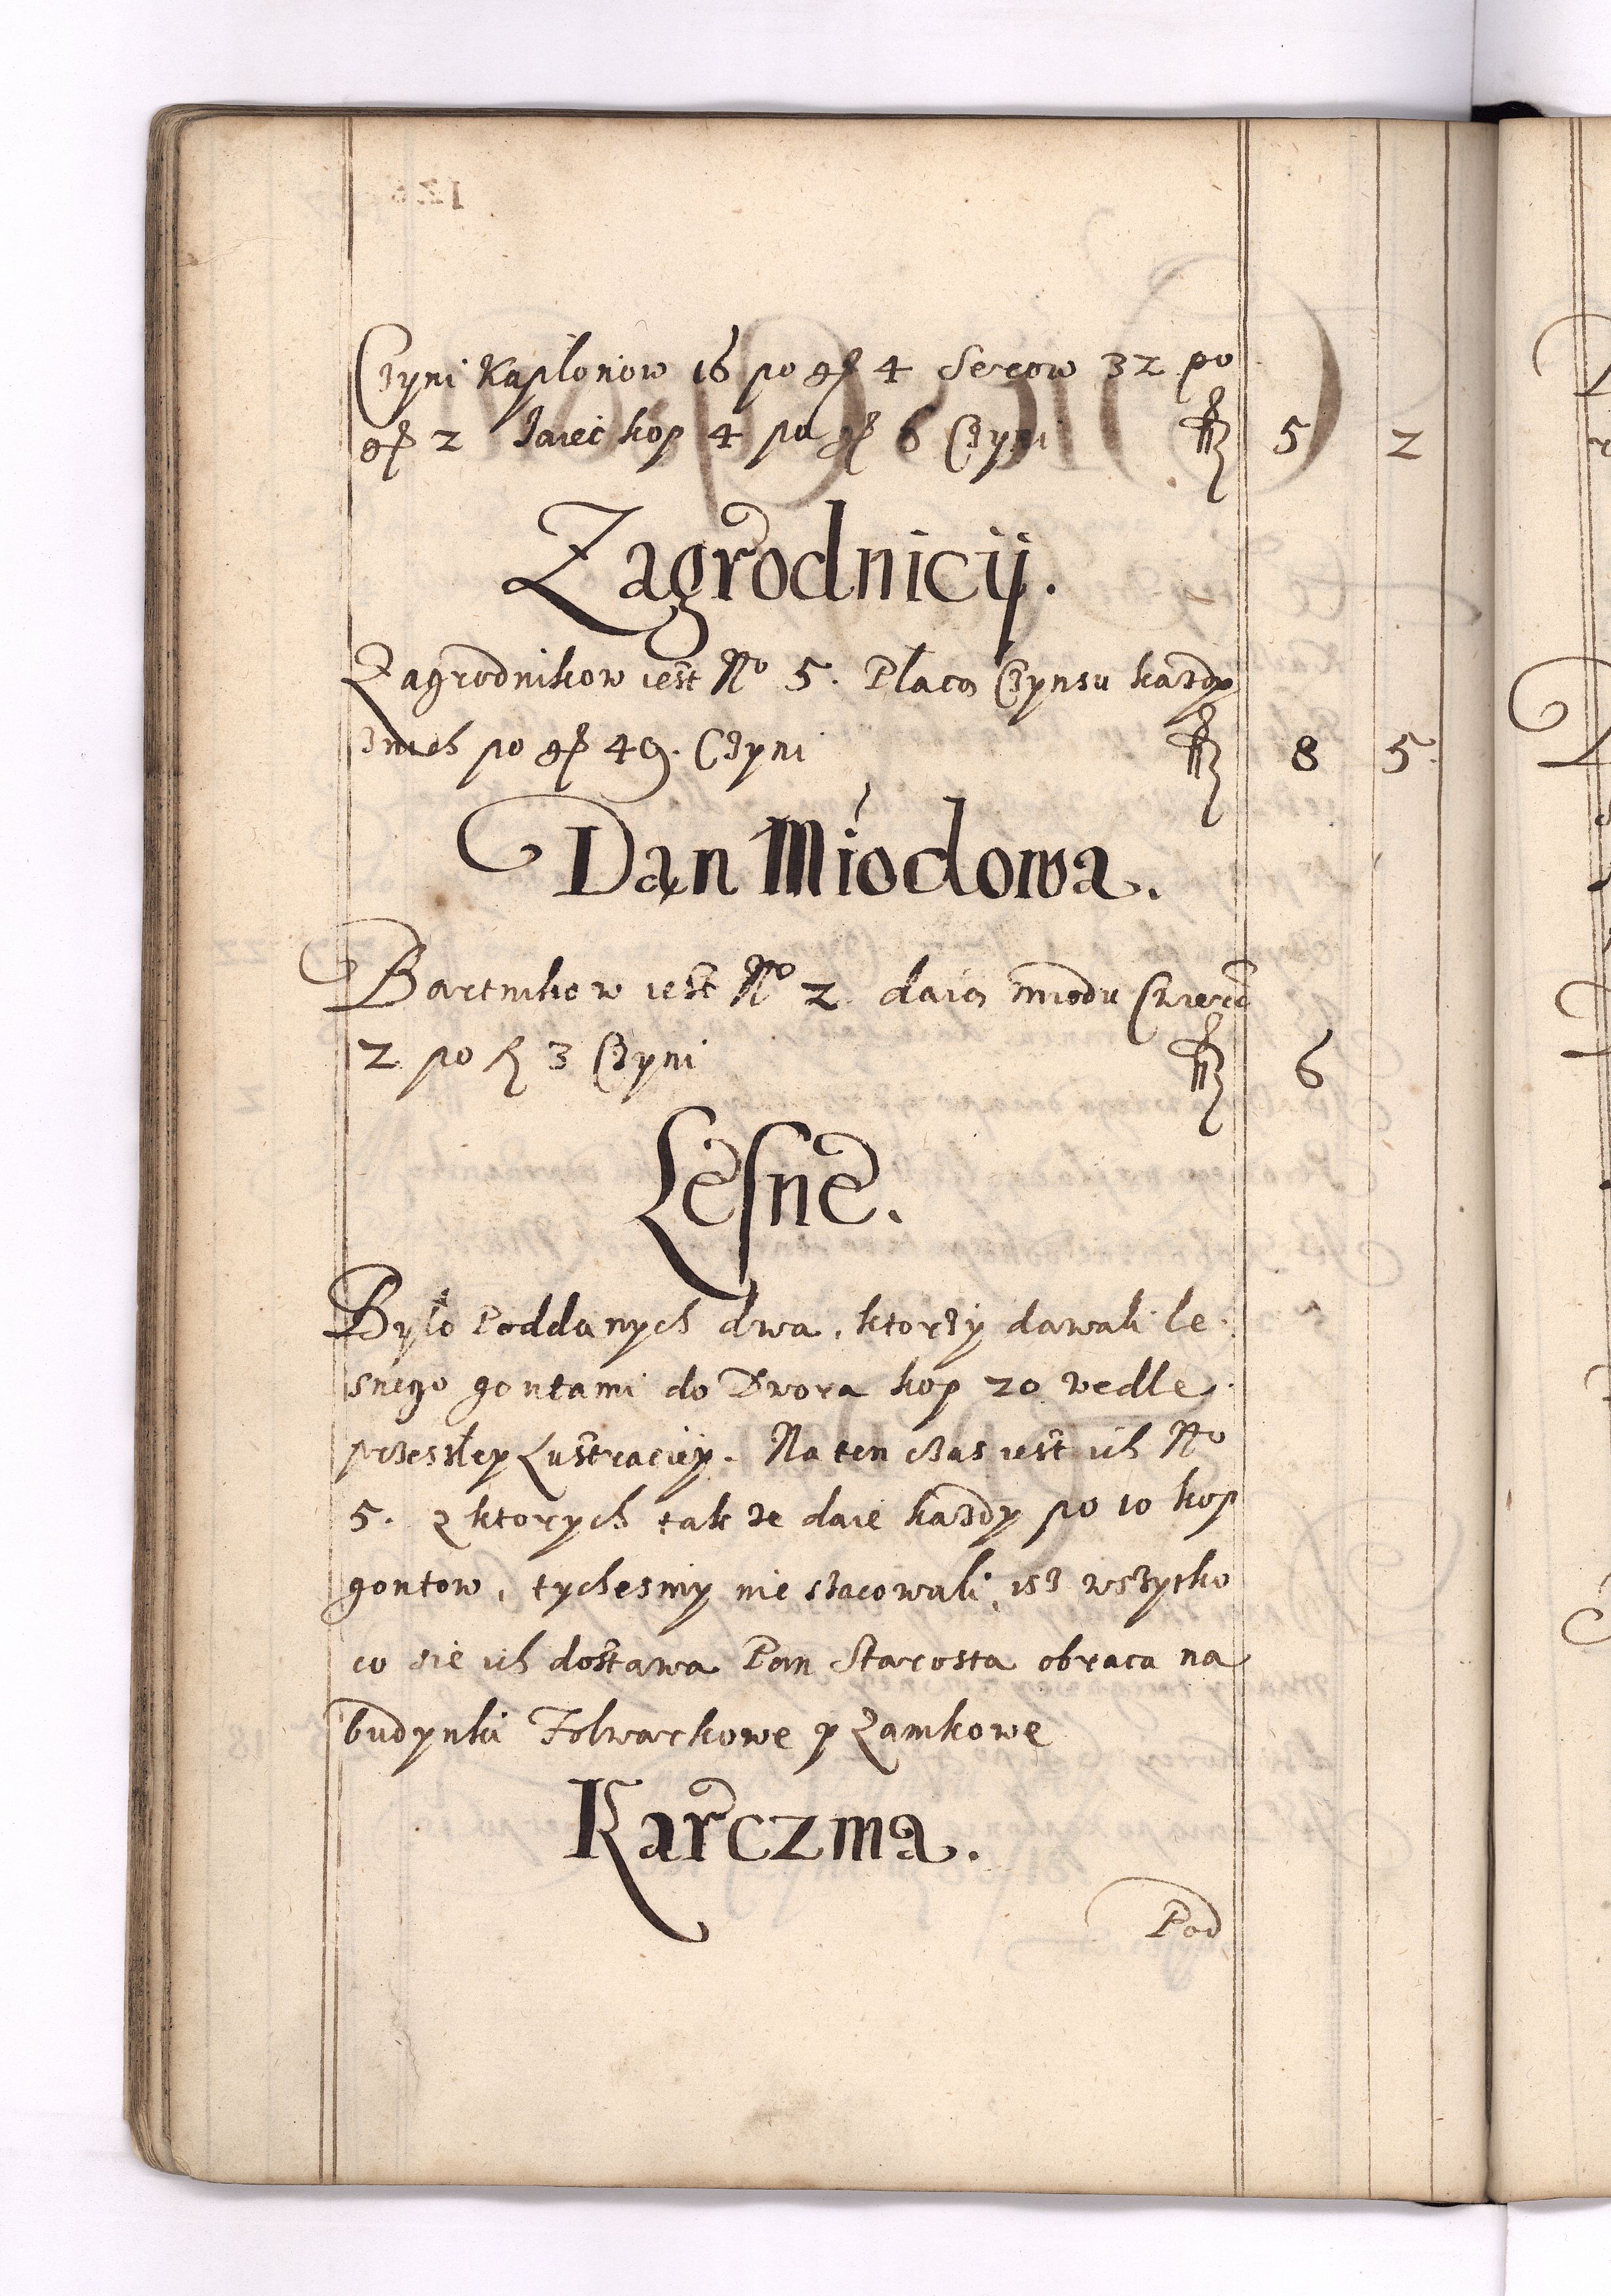 Czyni Kapłonow 16 po gr 4 Serow 32 po
gr 2 Jaiec kop 4 po gr 6 Czyni fl 5 2
Zagrodnicij.
Zagrodnikow iest No 5. Płacą Czynsu kazdy
znich po gr 49. Czyni fl 8 5.
Dań Miodowa.
Bartnikow iest No 2 daią miodu Cwierci
2 po fl 3 Czyni fl 6
Lesne.
Było Poddanych dwa, ktorzy dawali le
snego gontami do Dwora kop 20 wedle
przeszłey Lustraciiy. Na ten czas iest ich No
5. z ktorych tak ze daie kazdy po 10 kop
gontow, tychesmy nie szacowali, isz wszytko
co sie ich dostawa Pan Starosta obraca na
budynki Folwarkowe y Zamkowe
Karczma.
Pod